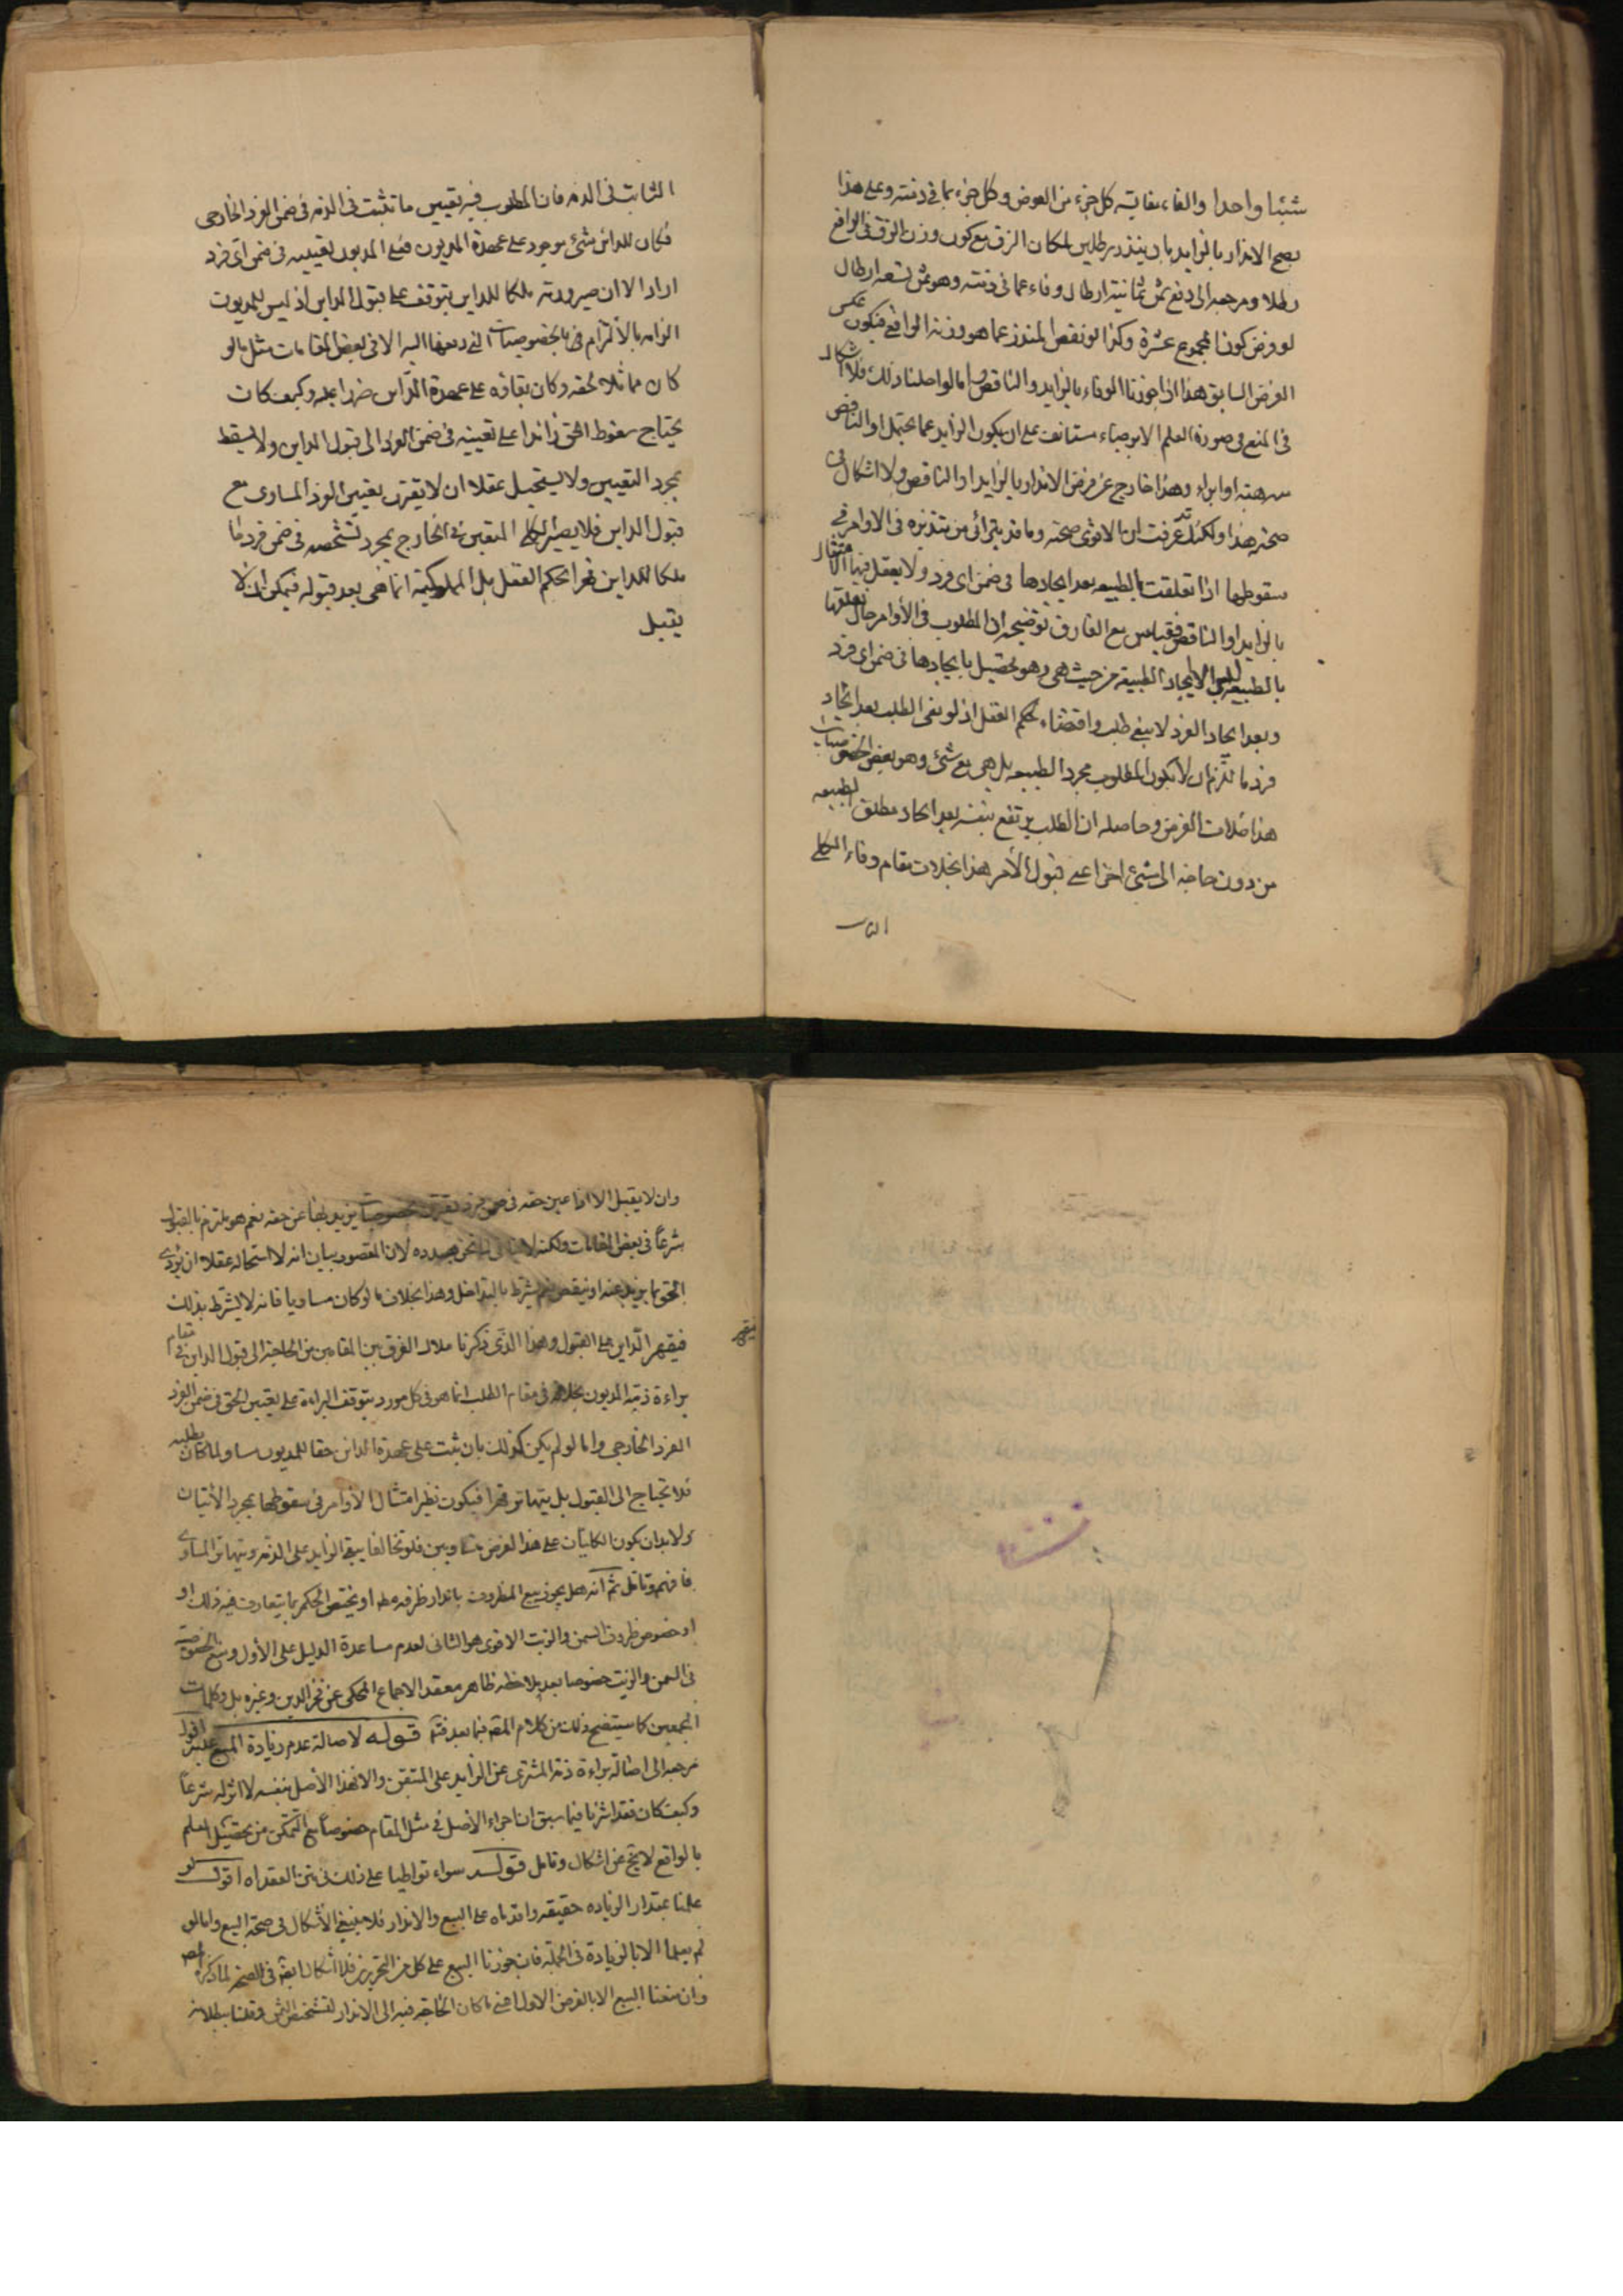 شيئا واحدا والفاء بمقابلة كل جزء من العوض وكل جزء بما في ذمته وعلى هذا
يصح الاندار بالزايد بان يندر برطلين لمكان الزق مع كون وزن الزق في الواقع
رطلا ومرجعه الى دفع ثمن ثمانية ارطال وفاء عما في ذمته وهو ثمن تسعة ارطال
لو فرض كون المجموع عشرة وكذا لو نقص المندر عما هو وزنه الواقعي فيكون عكس
الفرض السابق هذا اذا جوزنا الوفاء بالزايد والناقص واما لو احلنا ذلك فلا اشكال
في المنع في صورة العلم الا برضاء مستانف على ان يكون الزايد عما يحتمل او الناقص
منه هبة او ابراء وهذا خارج عن فرض الاندار بالزايد او الناقص ولا اشكال في
صحته هذا ولكنك قد عرفت ان الاقوى صحته وما قد يترائى من تنذيره في الاوامر في
سقوطها اذا تعلقت بالطبيعه بعد ايجادها في ضمن اى فرد ولا يعقل فيها الامتثال
بالزايد او الناقص فقياس مع الفارق توضيحه ان المطلوب في الأوامر حال تعلقها
بالطبيعة ليس الا ايجاد الطبيعة من حيث هى وهو يحصل بايجادها في ضمن اى فرد
وبعد ايجاد الفرد لا يبقى طلب واقتضاء بحكم العقل اذ لو بقى الطلب بعد ايجاد
فرد ما للزم ان لا يكون المطلوب مجرد الطبيعه بل هى مع شئ وهو بعض الخصوصيات
هذا خلاف الفرض وحاصله ان الطلب يرتفع بنفسه بعد ايجاد مطلق الطبيعه
من دون حاجة الى شئ اخر اعنى قبول الأمر هذا بخلاف مقام وفاء الكلى
الثابت
الثابت في الذمه فان المطلوب فيه تعيين ما تثبت في الذمه في ضمن الفرد الخارجى
فكان للداين شئ موجود على عهدة المديون فعلى المديون تعيينه في ضمن اى فرد
اراد الا ان صيرورته ملكا للداين يتوقف على قبول الداين اذ ليس للمديون
الزامه بالالتزام في بالخصوصيات التي دفعها اليه الا في بعض المقامات مثل ما لو
كان مماثلا لحقه وكان بقاؤه على عهدة الداين ضررا عليه وكيف كان
يحتاج سقوط الحق زائدا على تعيينه في ضمن الفرد الى قبول الداين ولا يسقط
بمجرد التعيين ولا يستحيل عقلا ان لا يقترن بتعيين الفرد المساوى مع
قبول الداين فلا يصير الكلى المتعين في الخارج بمجرد تشخصه في ضمن فرد ما
ملكا للداين قهرا بحكم العقل بل المملوكية انما هى بعد قبوله فيمكن ان لا
يقبل
وان لا يقبل الا اذا عين حقه في ضمن فرد يقترن بخصوصيات يزيد بها عن حقه نعم هو ملتزم بالقبول
شرعاً في بعض المقامات ولكنه لا ينافى لما نحن بصدده لان المقصود بيان انه لا استحاله عقلا ان يؤدى
الحق بما يزيد عنه او ينقص نعم يشترط بالتراضى وهذا بخلاف ما لو كان مساويا فانه لا يشترط بذلك
فيقهر الداين على القبول وهذا الذى ذكرنا ملاك الفرق بين المقامين من الحاجة الى قبول الداين في مقام
براءة ذمة المديون بخلافه في مقام الطلب انما هو في كل مورد يتوقف البراءة على تعيين الحق في ضمن الفرد
الفرد الخارجى واما لو لم يكن كذلك بان ثبت على عهدة الداين حقا للمديون مساو لما كان يطلبه
فلا يحتاج الى القبول بل يتهاتر قهرا فيكون نظير امتثال الأوامر في سقوطها بمجرد الأتيان
ولا بد ان يكون الكليتان على هذا الفرض متساويين فلو تخالفا يبقى الزايد على الذمه ويتهاتر المساوى
فافهم وتامل ثم انه هل يجوز بيع المظروف باندار ظرفه مطلقا او يختص الحكم بما يتعارف فيه ذلك او
او خصوص ظروف السمن والزيت الاقوى هو الثانى لعدم مساعدة الدليل على الأول ومنع الخصوصية
في السمن والزيت خصوصا بعد ملاحظه ظاهر معقد الاجماع المحكى عن فخر الدين وغيره بل وكلمات
المجمعين كما سيتضح ذلك من كلام المصنف فيما بعد فتم قوله لاصالة عدم زيادة المبيع عليه اقول
مرجعه الى اصالة براءة ذمة المشترى عن الزايد على المتيقن والا فهذا الأصل بنفسه لا اثر له شرعاً
وكيف كان فقد اشرنا فيما سبق ان اجراء الأصل في مثل المقام خصوصاً مع التمكن من تحصيل العلم
بالواقع لا يخ عن اشكال وتامل قوله سواء تواطيا على ذلك في متن العقد اه اقول لو
علمنا بمقدار الزياده حقيقه واقدماه على البيع والاندار فلا ينبغى الأشكال في صحة البيع واما لو
لم يعلما الا بالزيادة في الجملة فان جوزنا البيع على كل من التحريرين فلا اشكال ايضا في الصحه لما ذكره المص
وان منعنا البيع الا بالفرض الاول اعنى ما كان الحاجة فيه الى الاندار لتشخيص الثمن وقلنا ببطلانه